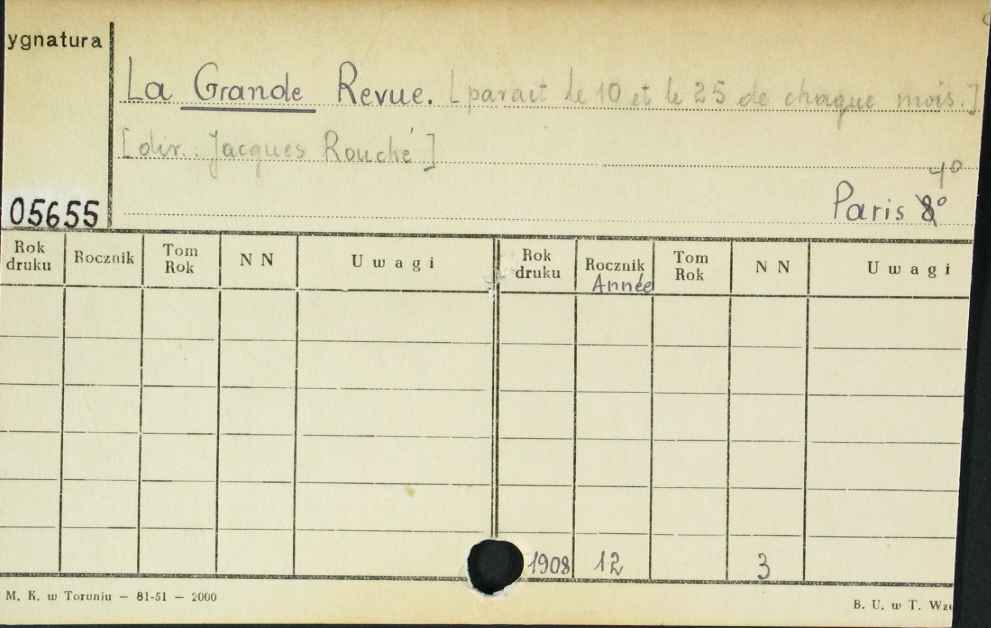 ygnatura
La Grande Revue. [parait le 10 et le 25 de chaque mois.]
[dir. : Jacques Rouché]
4º
05655
Paris 8º
Rok druku Rocznik Tom Rok N N Uwagi Rok druku Rocznik Tom Rok N N Uwagi
Année
1908 12 3
M. K. w Toruniu — 81-51 — 2000
B. U. w T. Wz